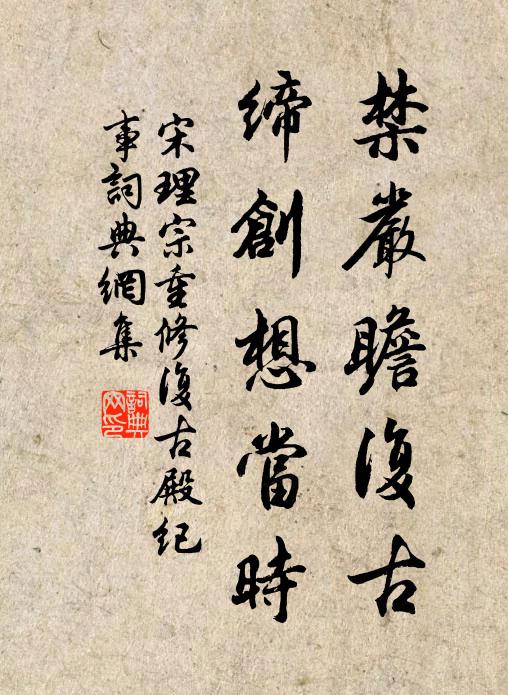 禁嚴瞻復古
締創想當時
宋理宗重修復古殿紀
事詞典網集
詞典
网印